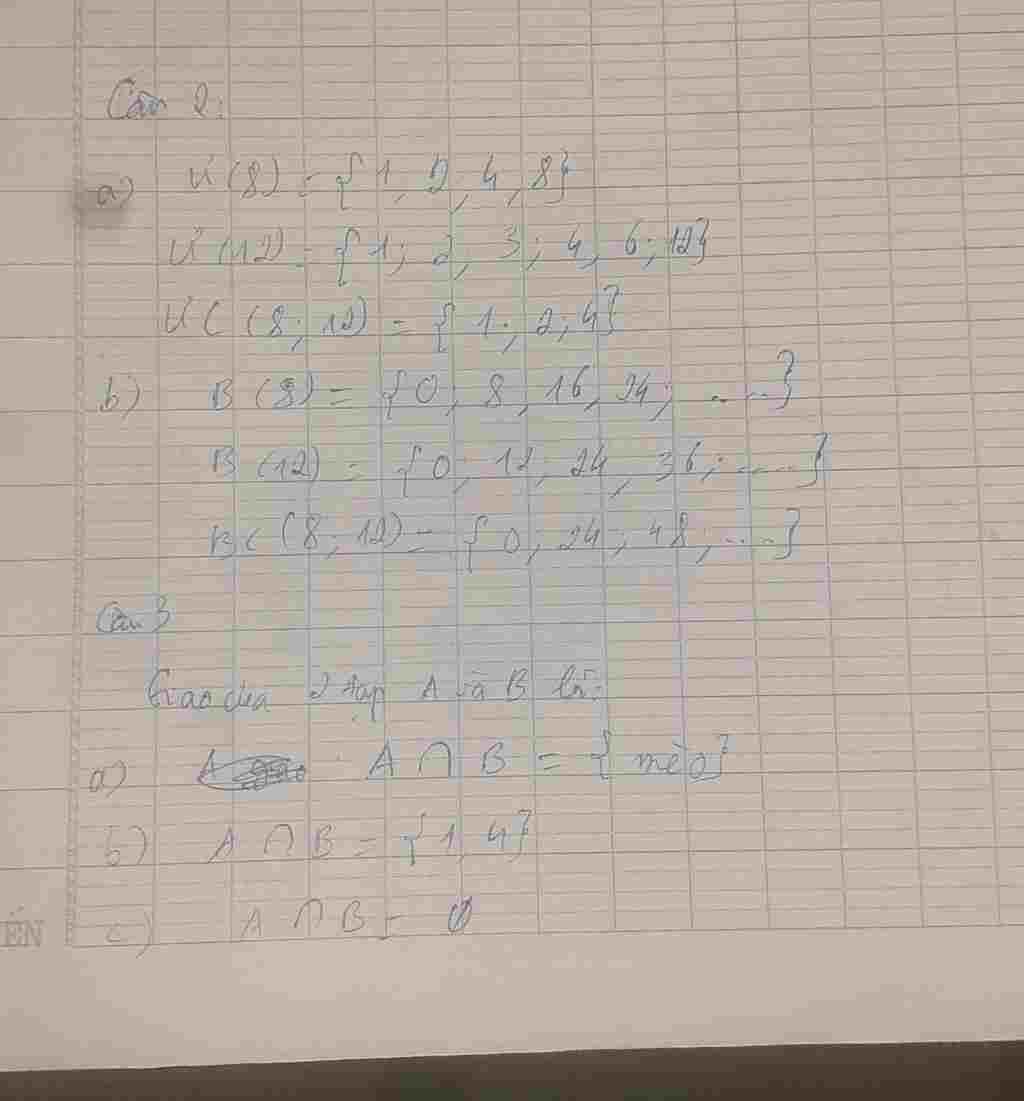 Câu 2:
a) Ư(8) = {1, 2, 4, 8}
Ư(12) = {1; 2, 3; 4, 6; 12}
ƯC(8; 12) = {1; 2; 4}
b) B(8) = {0, 8, 16, 24; .....}
B(12) = {0; 12; 24, 36; .....}
BC(8; 12) = {0; 24; 48, ....}
Câu 3
Giao của 2 tập A và B là:
a) A A ∩ B = {mèo}
b) A ∩ B = {1, 4}
c) A ∩ B = ∅
ẾN